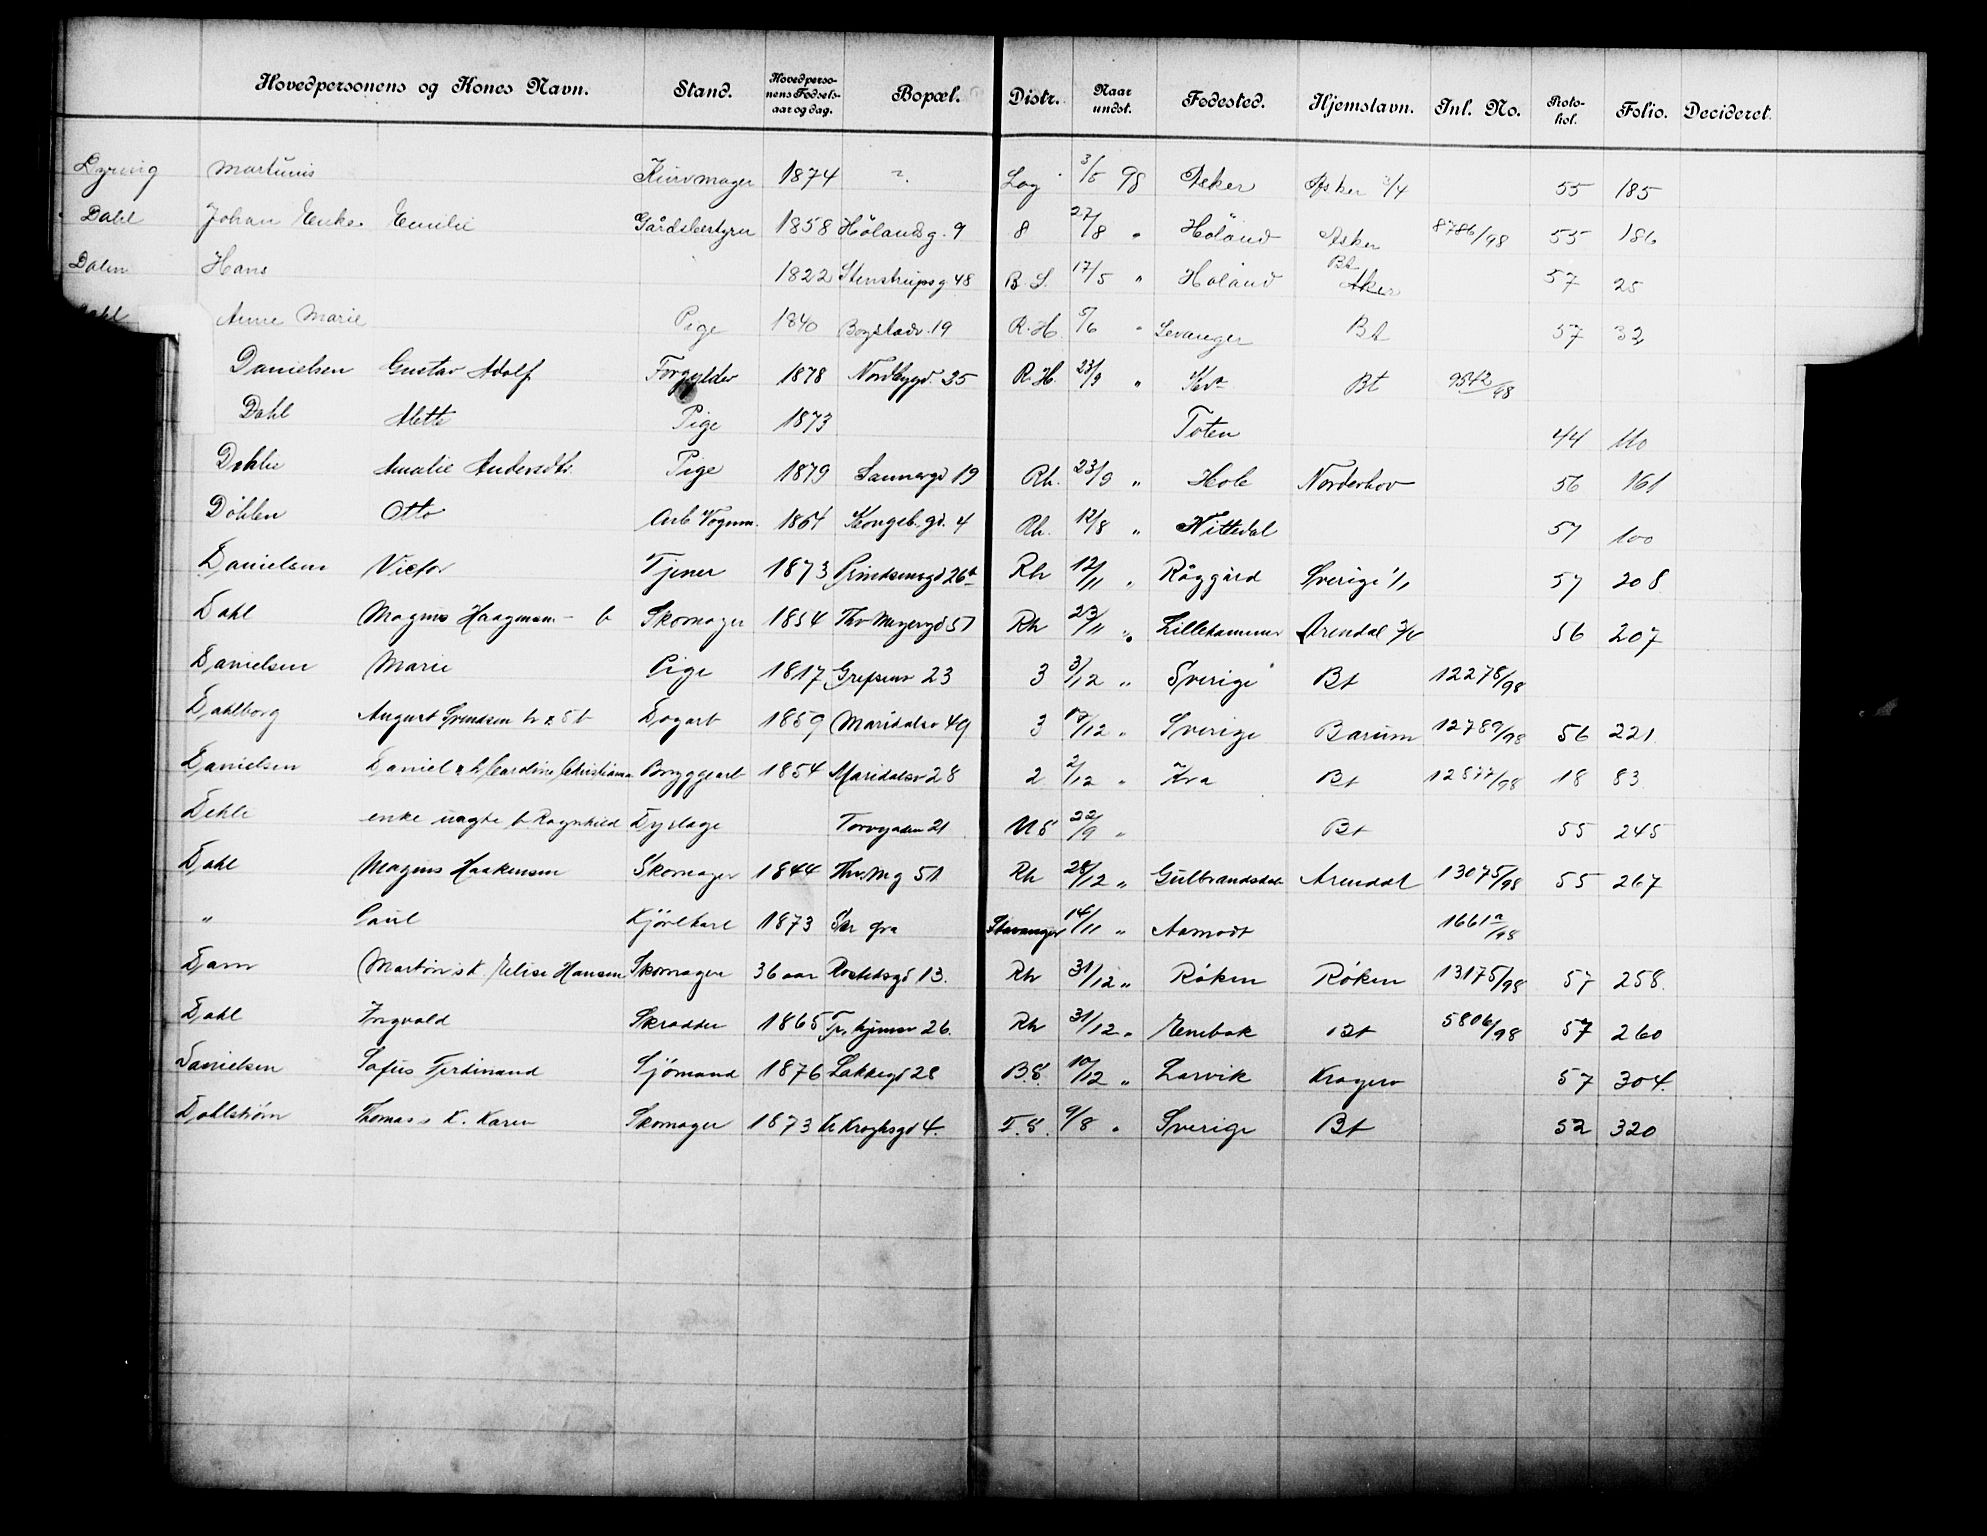 Hovedpersonens og Kones Navn. Stand. Hovedpersonens Fødselsaar og dag. Bopæl. Distr. Naar undst. Fødested. Hjemstavn. Inl. No. Protokol. Folio. Decideret.
Dyring Martinius Kurvmager 1874 ?. Log 3/5 98 Asker Asker 3/4 55 185
Dahl Johan Enke Emilie Gårdsbestyrer 1858 Hölandsg. 9 8 27/8 " Höland Asker 8786/98 55 186
Dalen Hans 1822 Stenstrupsg 48 B. S. 17/5 " Höland Bt Aker 57 25
Dahl Anne Marie Pige 1840 Bogstadv. 19 R. H. 5/6 " Levanger Bt 57 32
Danielsen Gustav Adolf Forgylder 1878 Nordbygd. 35 R. H. 23/9 " Bt 9542/98
Dahl Mette Pige 1873 Toten 44 110
Dehlie Amalie Andersdtr. Pige 1879 Sannergd 19 Rh. 23/9 " Hole Norderhov 56 161
Döhlen Otto Arb Vognm. 1864 Kongeb. gd. 4 Rh. 12/8 " Nittedal 57 100
Danielsen Victor Tjener 1873 26a Rh 12/11 " Råggärd Sverige 1/1 57 208
Dahl Magnus Haagensen - b Skomager 1854 Thv Meyersgd 51 Rh 23/11 " Lillehammer Arendal 56 207
Danielsen Marie Pige 1817 Grefsenv 23 3 3/12 " Sverige Bt 12278/98
Dahlborg August Svendsen Dagarb 1859 Maridalsv 49 3 17/12 " Sverige Bærum 12789/98 56 221
Danielsen Daniel Caroline Christiane Bryggearb 1854 Maridalsv 28 2 2/12 " Kra Bt 12877/98 18 83
Dehli enke uægte b Ragnhild Dyrlæge Torvgaden 21 US 22/9 " Bt 55 245
Dahl Magnus Haakensen Skomager 1844 Thv Mg 51 Rh 28/12 " Gulbrandsdal Arendal 13075/98 55 267
" Paul Kjörekarl 1873 Str fra Stavanger 14/11 " Aamodt 1661a/98
Dam Martin s K Elise Hansen Skomager 36 aar Rostedsgd 13. Rh 31/12 " Röken Röken 13175/98 57 258.
Dahl Ingvald Skrædder 1865 Trhjemsv 26. Rh 31/12 " Enebak Bt 5806/98 57 260
Danielsen Sofus Ferdinand Sjömand 1876 Lakkegd 28 B.S. 10/12 " Larvik Kragerø 57 304.
Dahlström Thomas s K. Karen Skomager 1873 Kr Kroghsgd 4. T. S. 9/8 " Sverige Bt 52 320